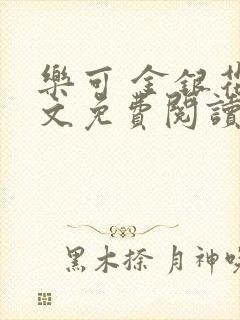 樂可 金銀花
文免費閱讀
黑木捺 月神